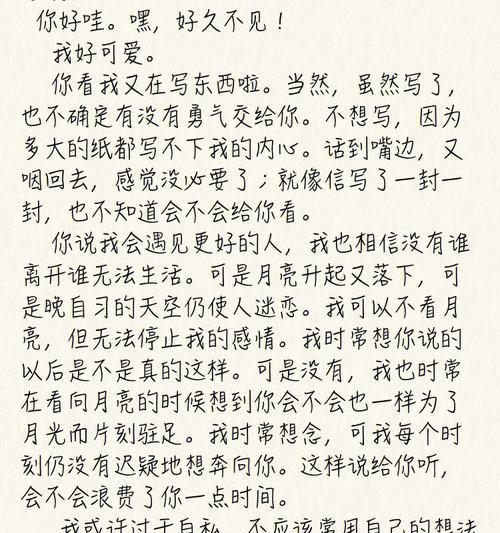 你好哇。嘿，好久不见！
我好可爱。
你看我又在写东西啦。当然，虽然写了，
也不确定有没有勇气交给你。不想写，因为
多大的纸都写不下我的内心。话到嘴边，又
咽回去，感觉没必要了；就像信写了一封一
封，也不知道会不会给你看。
你说我会遇见更好的人，我也相信没有谁
离开谁无法生活。可是月亮升起又落下，可
是晚自习的天空仍使人迷恋。我可以不看月
亮，但无法停止我的感情。我时常想你说的
以后是不是真的这样。可是没有，我也时常
在看向月亮的时候想到你会不会也一样为了
月光而片刻驻足。我时常想念，可我每个时
刻仍没有迟疑地想奔向你。这样说给你听，
会不会浪费了你一点时间。
我或许过于自私，不应该常用自己的想法